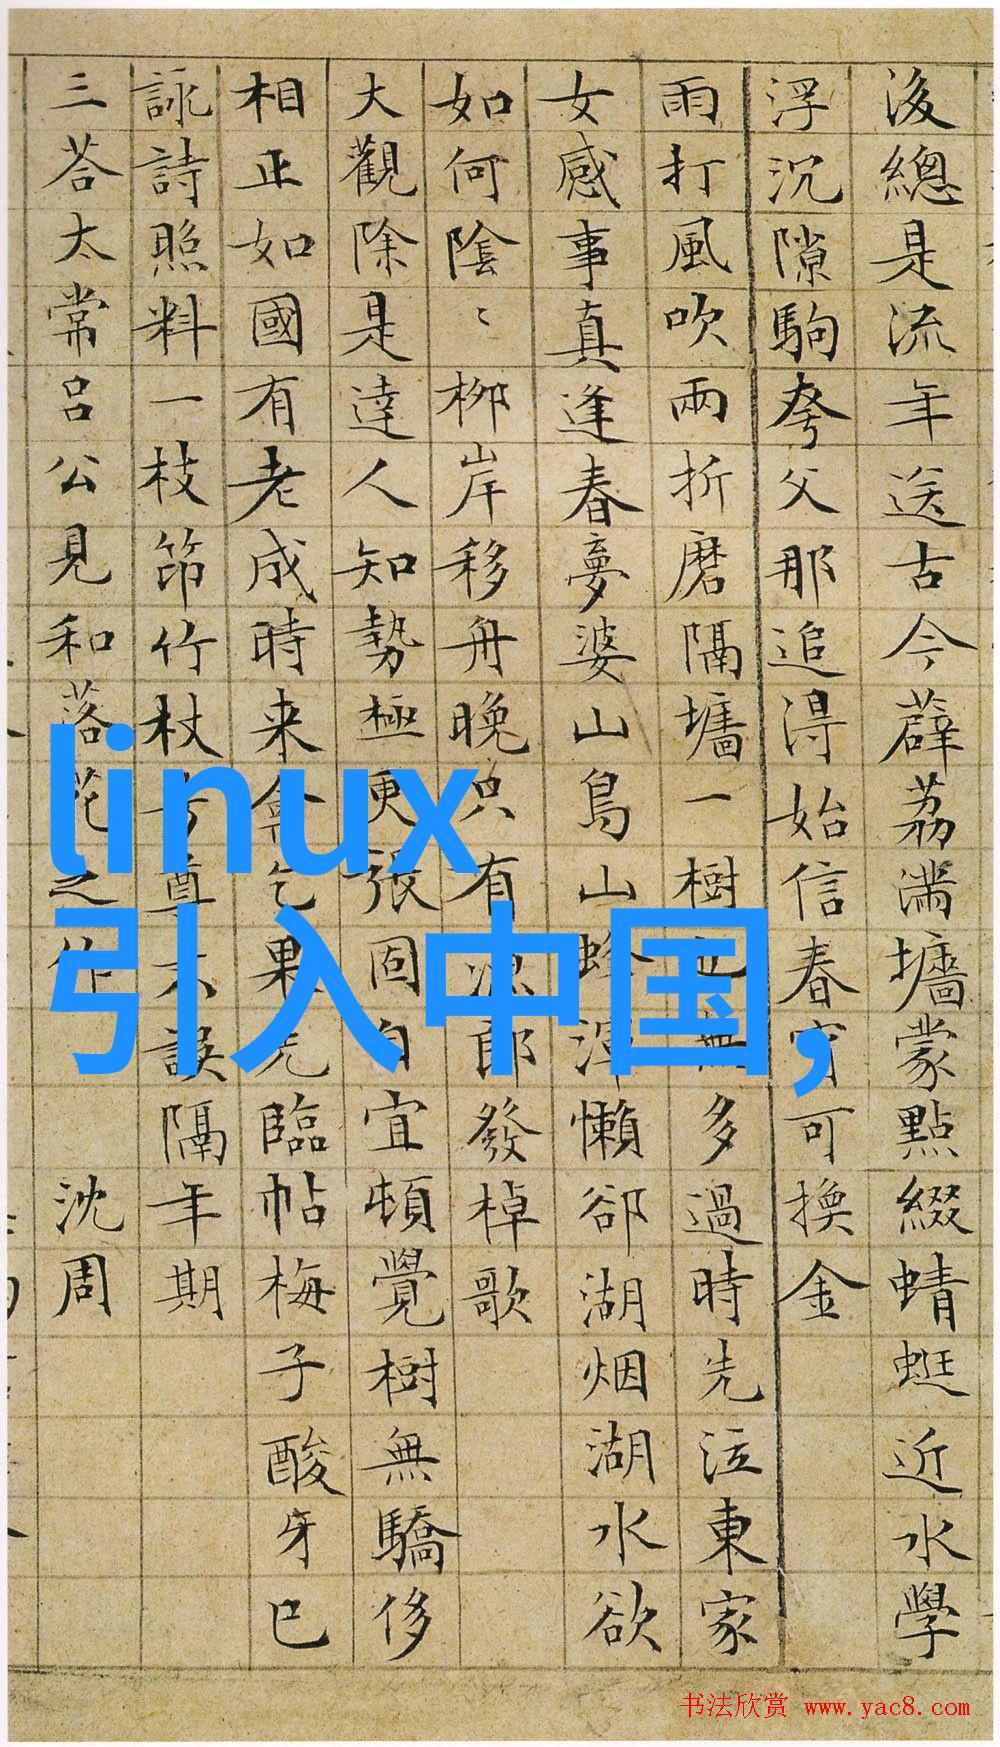 後總是流年送古今薜荔滿墻蒙點綴蜻蜓近水學
浮沉隙駒夸父那追得始信春宵可換金
雨打風吹兩折磨隔墻一樹也無多過時先泣東家
女感事真逢春夢婆山鳥山蜂渾懶卻湖烟湖水欲
如何陰〻柳岸移舟晚只有漁郎發棹歌
大觀除是達人知勢極更張固自宜頓覺樹無驕侈
相正如國有老成時来禽乞果先臨帖梅子酸牙已
詠詩照料一枝笻竹杖芳尊不誤隔年期
三荅太常呂公見和落花之作 沈周
linux
引入中国,
书法欣赏 www.yac8.com